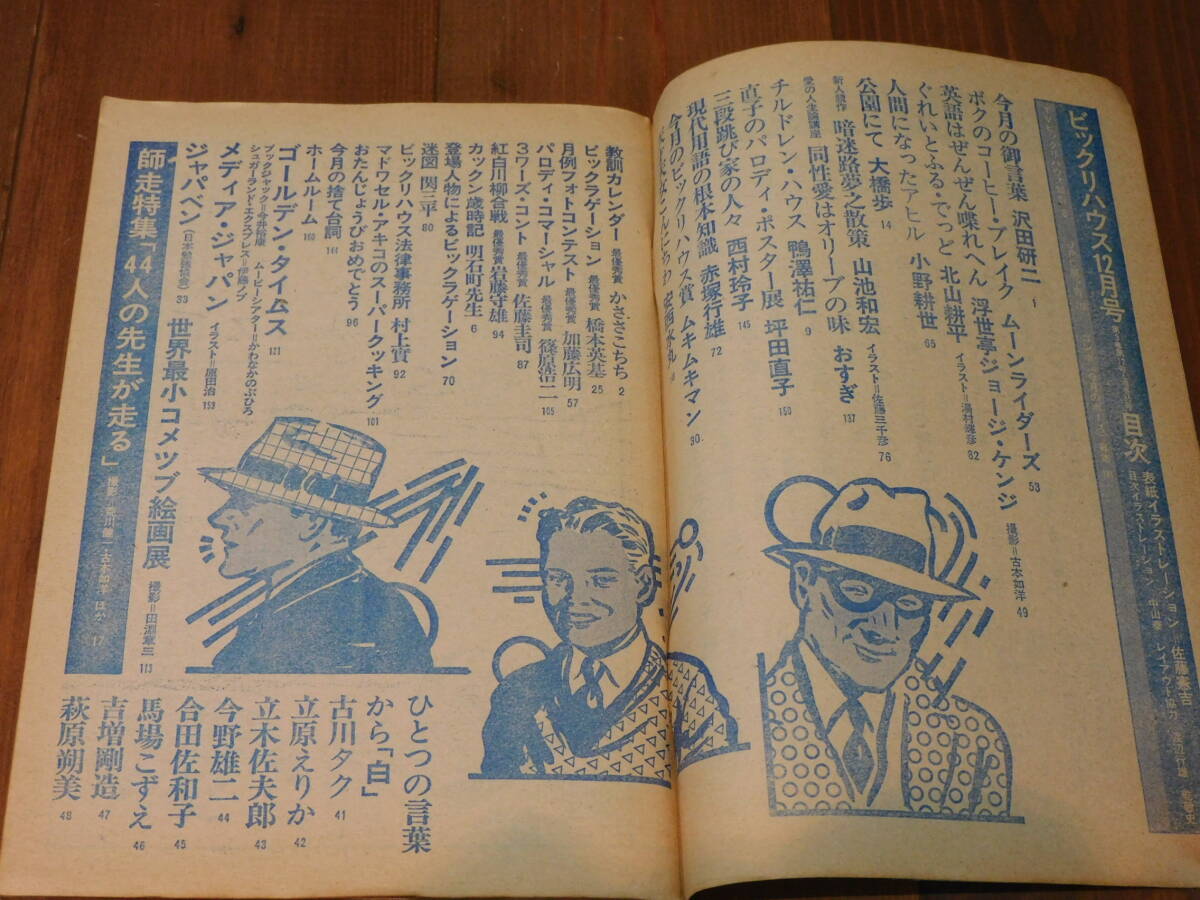 ビックリハウス12月号
目次
表紙イラストレーション=佐藤憲吉
目次イラストレーション
レイアウト協力
今月の御言葉 沢田研二 1
ボクのコーヒー・ブレイク ムーンライダーズ 53
英語はぜんぜん喋れへん 浮世亭ジョージ・ケンジ 撮影=古本如洋 49
ぐれいとふる・でっど 北山耕平 イラスト=湯村輝彦 82
人間になったアヒル 小野耕世 65
公園にて 大橋歩 14
新人競作 暗迷路夢之散策 山池和宏 イラスト=佐藤三千彦 76
愛の人生論講座 同性愛はオリーブの味 おすぎ 137
チルドレン・ハウス 鴨澤祐仁 9
直子のパロディ・ポスター展 坪田直子 150
三段跳び家の人々 西村玲子 145
現代用語の根本知識 赤塚行雄 72
今月のビックリハウス賞 ムキムキマン 90
教訓カレンダー 最優秀賞 かささこちち 2
ビックラゲーション 最優秀賞 橋本英基 25
月例フォトコンテスト 最優秀賞 加藤広明 57
パロディ・コマーシャル 最優秀賞 篠原浩二 105
3ワーズ・コント 最優秀賞 佐藤圭司 87
紅白川柳合戦 最優秀賞 岩藤守雄 94
カックン歳時記 明石町先生 6
登場人物によるビックラゲーション 70
迷図 関三平 80
ビックリハウス法律事務所 村上實 92
マドワセル・アキコのスーパークッキング 101
おたんじょうびおめでとう 96
今月の捨て台詞 144
ホームルーム 160
ゴールデン・タイムス 121
ブックジャック=今井裕康 ムービーシアター=かわなかのぶひろ
シュガーランド・エクスプレス=伊藤ノブ
メディア・ジャパン イラスト=原田治 153
ジャパベン(日本勉強協会) 33
世界最小コメツブ絵画展 撮影=田淵章三 113
師走特集「44人の先生が走る」 17
ひとつの言葉
から「白」
古川タク 41
立原えりか 42
立木佐夫郎 43
今野雄二 44
合田佐和子 45
馬場こずえ 46
吉増剛造 47
萩原朔美 48